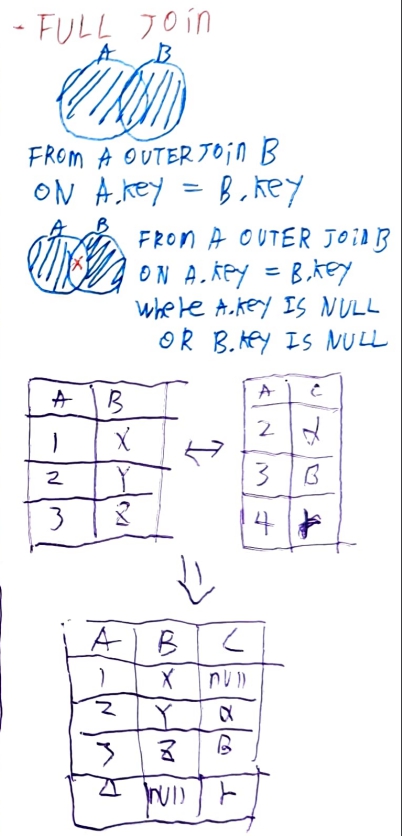 - FULL JOIN
A B
FROM A OUTER JOIN B
ON A.KEY = B.KEY
A B
FROM A OUTER JOIN B
ON A.KEY = B.KEY
where A.KEY IS NULL
OR B.KEY IS NULL
A B
1 X
2 Y
3 Z
A C
2 α
3 B
4 r
A B C
1 X null
2 Y α
3 Z B
4 null r